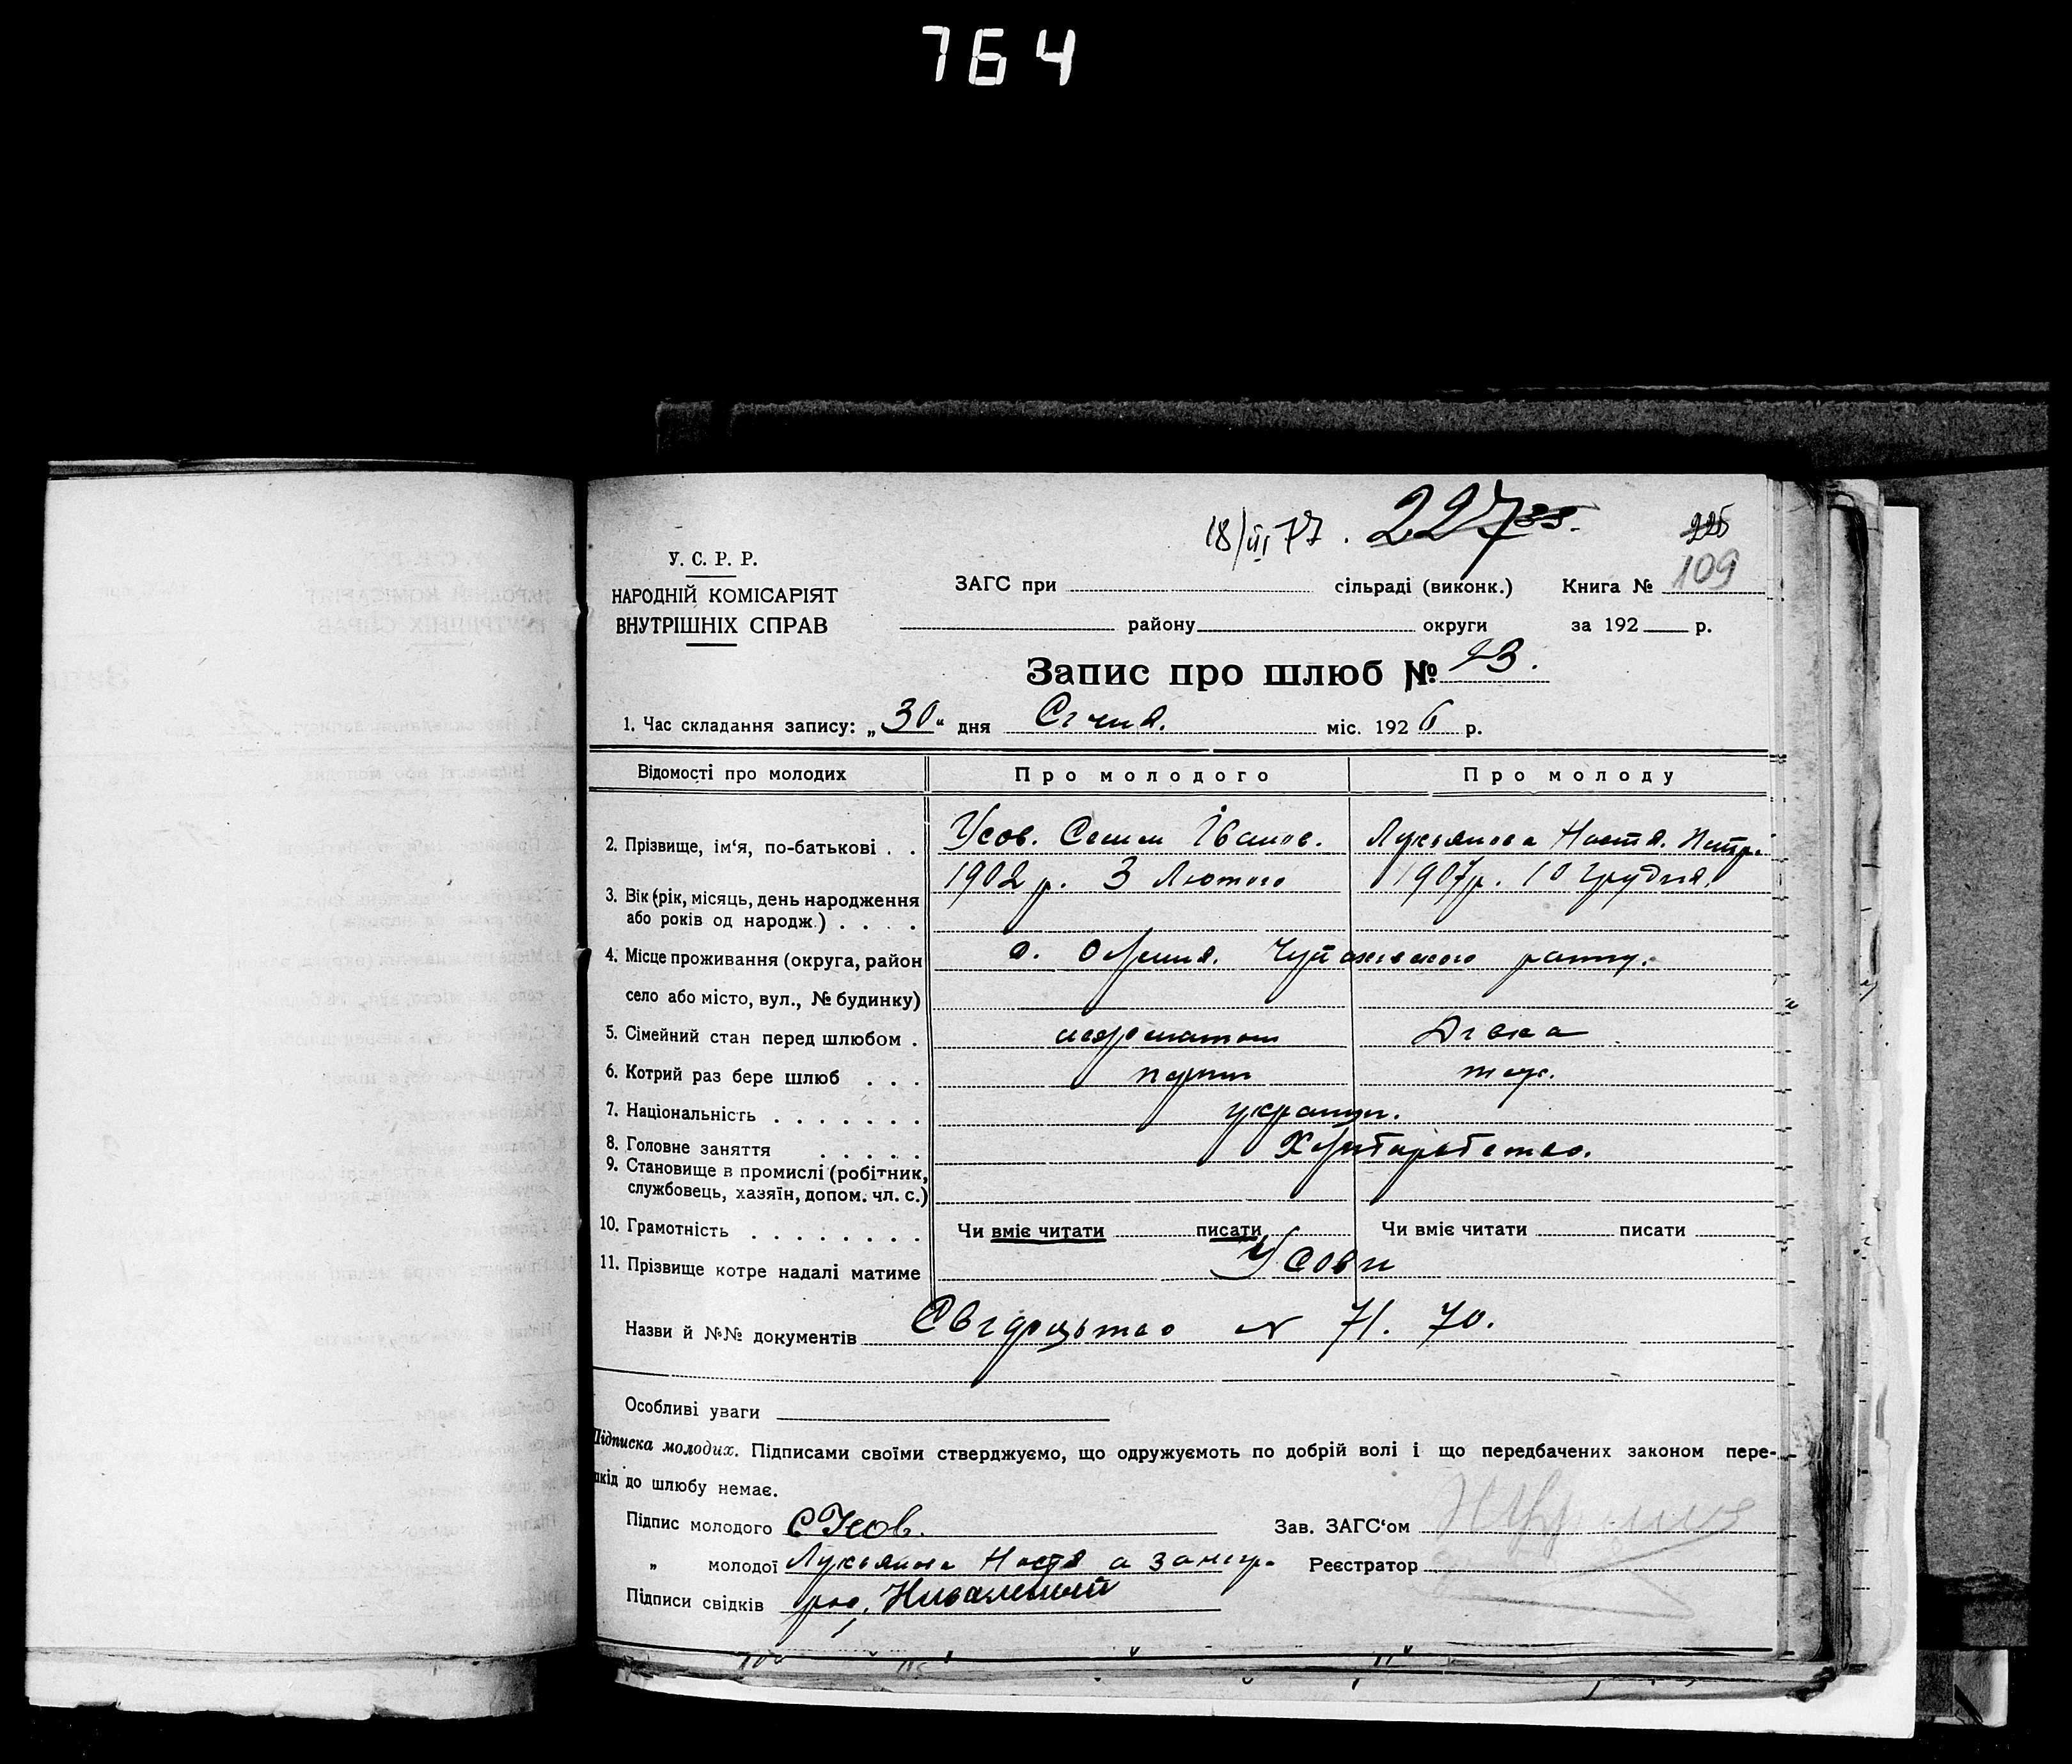 764
18/III 77. 227 225
У. С. Р. Р.
НАРОДНІЙ КОМІСАРІЯТ
ВНУТРІШНІХ СПРАВ
ЗАГС при сільраді (виконк.) Книга № 109
району округи за 192 р.
Запис про шлюб № 23.
1. Час складання запису: „30“ дня Січня. міс. 1926 р.
Відомості про молодих Про молодого Про молоду
2. Прізвище, ім‘я, по-батькові . . Усов. Семен Іванов. Лукьянова Настя. Петр.
3. Вік (рік, місяць, день народження 1902 р. 3 Лютого 1907р. 10 Грудня.
або років од народж.) . . . .
4. Місце проживання (округа, район с. Чутовского району.
село або місто, вул., № будинку)
5. Сімейний стан перед шлюбом . Дівка
6. Котрий раз бере шлюб . . . перший тож.
7. Національність . . . . . . . україн.
8. Головне заняття . . . . . Хліборобство.
9. Становище в промислі (робітник,
службовець, хазяїн, допом. чл. с.)
10. Грамотність . . . . . . . . Чи вміє читати писати Чи вміє читати писати
11. Прізвище котре надалі матиме Усови
Назви й №№ документів Свідоцтво № 71. 70.
Особливі уваги
Підписка молодих. Підписами своїми стверджуємо, що одружуємоть по добрій волі і що передбачених законом пере-
шкід до шлюбу немає.
Підпис молодого С Усов. Зав. ЗАГС‘ом
„ молодої Лукьянова Настя а за негр. Реєстратор
Підписи свідків рос.